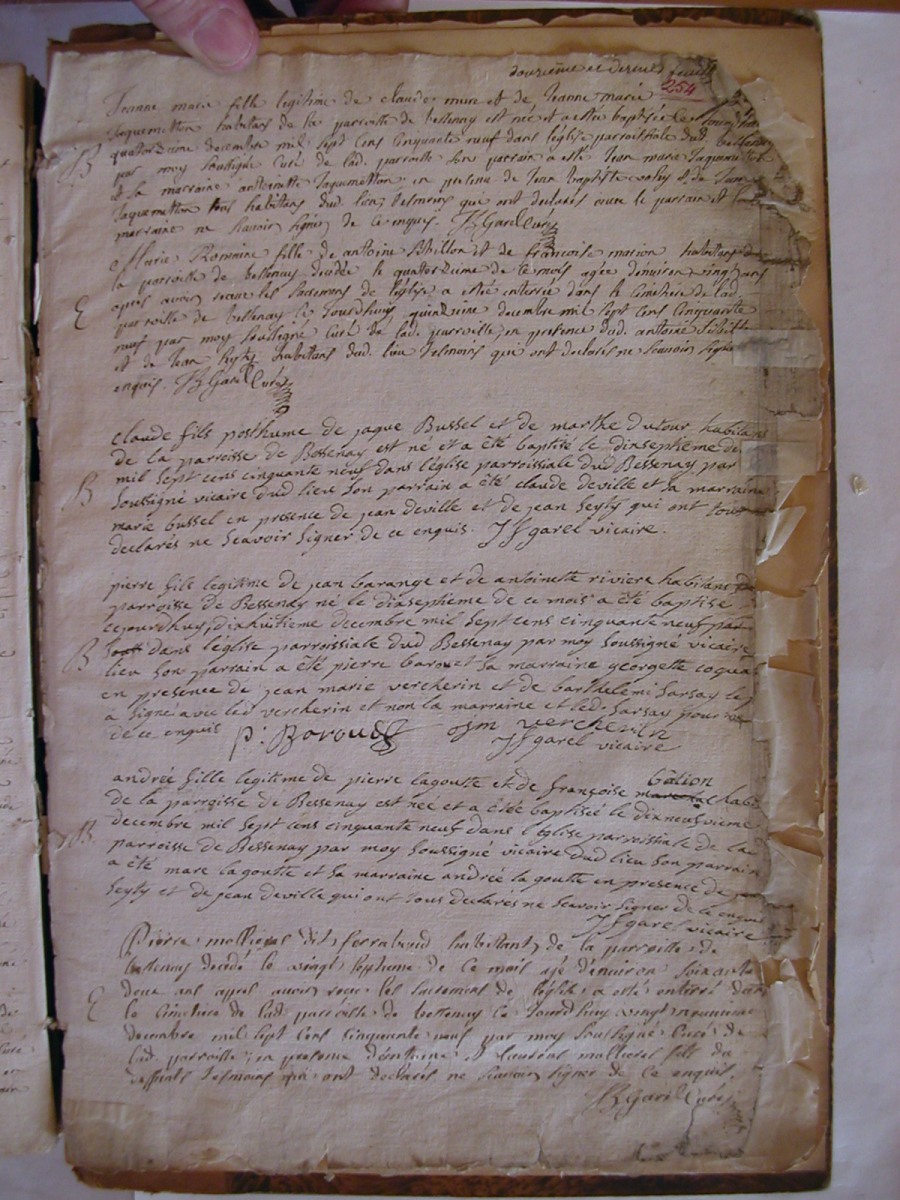 douzieme et dernier feuillet
254
Jeanne marie fille legitime de claude et de Jeanne marie
Jaquemetton habitans de la parroisse de bessenay est née et a esté baptisée le
quatorzieme decembre mil sept cens cinquante neuf dans l'église parroissiale dud. bessenay
B
par moy soussigné curé de lad. parroisse son parrain a esté Jean marie Jaquemetton
et sa marraine antoinette Jaquemetton en presence de Jean baptiste et de
Jaquemetton tous habitans dud. lieu, tesmoins qui ont declarés avec le parrain et la
marraine ne sçavoir signer de ce enquis. Garel Curé
Marie Romaine fille de antoine et de francoise marion habitans de
la parroisse de bessenay decedée le quatorzieme de ce mois agée denviron vingt ans
apres avoir receue les sacremens de l'église a esté enterrée dans le cimetiere de lad.
E
parroisse de bessenay ce Jourdhuy quinzieme decembre mil sept cens cinquante
neuf par moy soussigné curé de lad. parroisse, en presence dud. antoine
et de Jean habitans dud. lieu tesmoins qui ont declarés ne sçavoir signer
enquis. Garel Curé
claude fils posthume de jaque Bussel et de marthe dutour habitans
de la parroisse de Bessenay est né et a été baptisé le dixseptieme de
mil sept cens cinquante neuf dans l'église parroissiale dud Bessenay par
B
soussigné vicaire dud lieu son parrain a été claude deville et sa marraine
marie bussel en presence de jean deville et de jean seyty qui ont tous
declarés ne sçavoir signer de ce enquis. JF garel vicaire.
pierre fils legitime de jean barange et de antoinette riviere habitans
parroisse de Bessenay né le dixseptieme de ce mois a été baptisé
cejourdhuy dixhuitieme decembre mil sept cens cinquante neuf par
dans l'église parroissiale dud Bessenay par moy soussigné vicaire
B
lieu son parrain a été pierre barou et sa marraine georgette coquar
en presence de jean marie vercherin et de barthelemi sarsay le
a signé avec led vercherin et non la marraine et led sarsay pour
de ce enquis p. Barou jm vercherin
JF garel vicaire
bation
andrée fille legitime de pierre lagoutte et de françoise habi
de la parroisse de Bessenay est née et a été baptisée le dixneufvieme
decembre mil sept cens cinquante neuf dans l'église parroissiale de lad
B
parroisse de Bessenay par moy soussigné vicaire dud lieu son parrain
a été marc lagoutte et sa marraine andrée la goutte en presence de jean
seyty et de jean deville qui ont tous declarés ne sçavoir signer de ce enquis
JF garel vicaire
Pierre dit habittant de la parroisse de
bessenay decedé le vingt septieme de ce mois agé d'environ soixante
douze ans apres avoir receu les sacremens de l'église a esté enterré dans
E
le cimetiere de lad. parroisse de bessenay ce Jourdhuy vingt neuvieme
decembre mil sept cens cinquante neuf par moy soussigné curé de
lad. parroisse, en presence d'anthoine et fils du
deffunt tesmoins qui ont declarés ne sçavoir signer de ce enquis.
Garel Curé